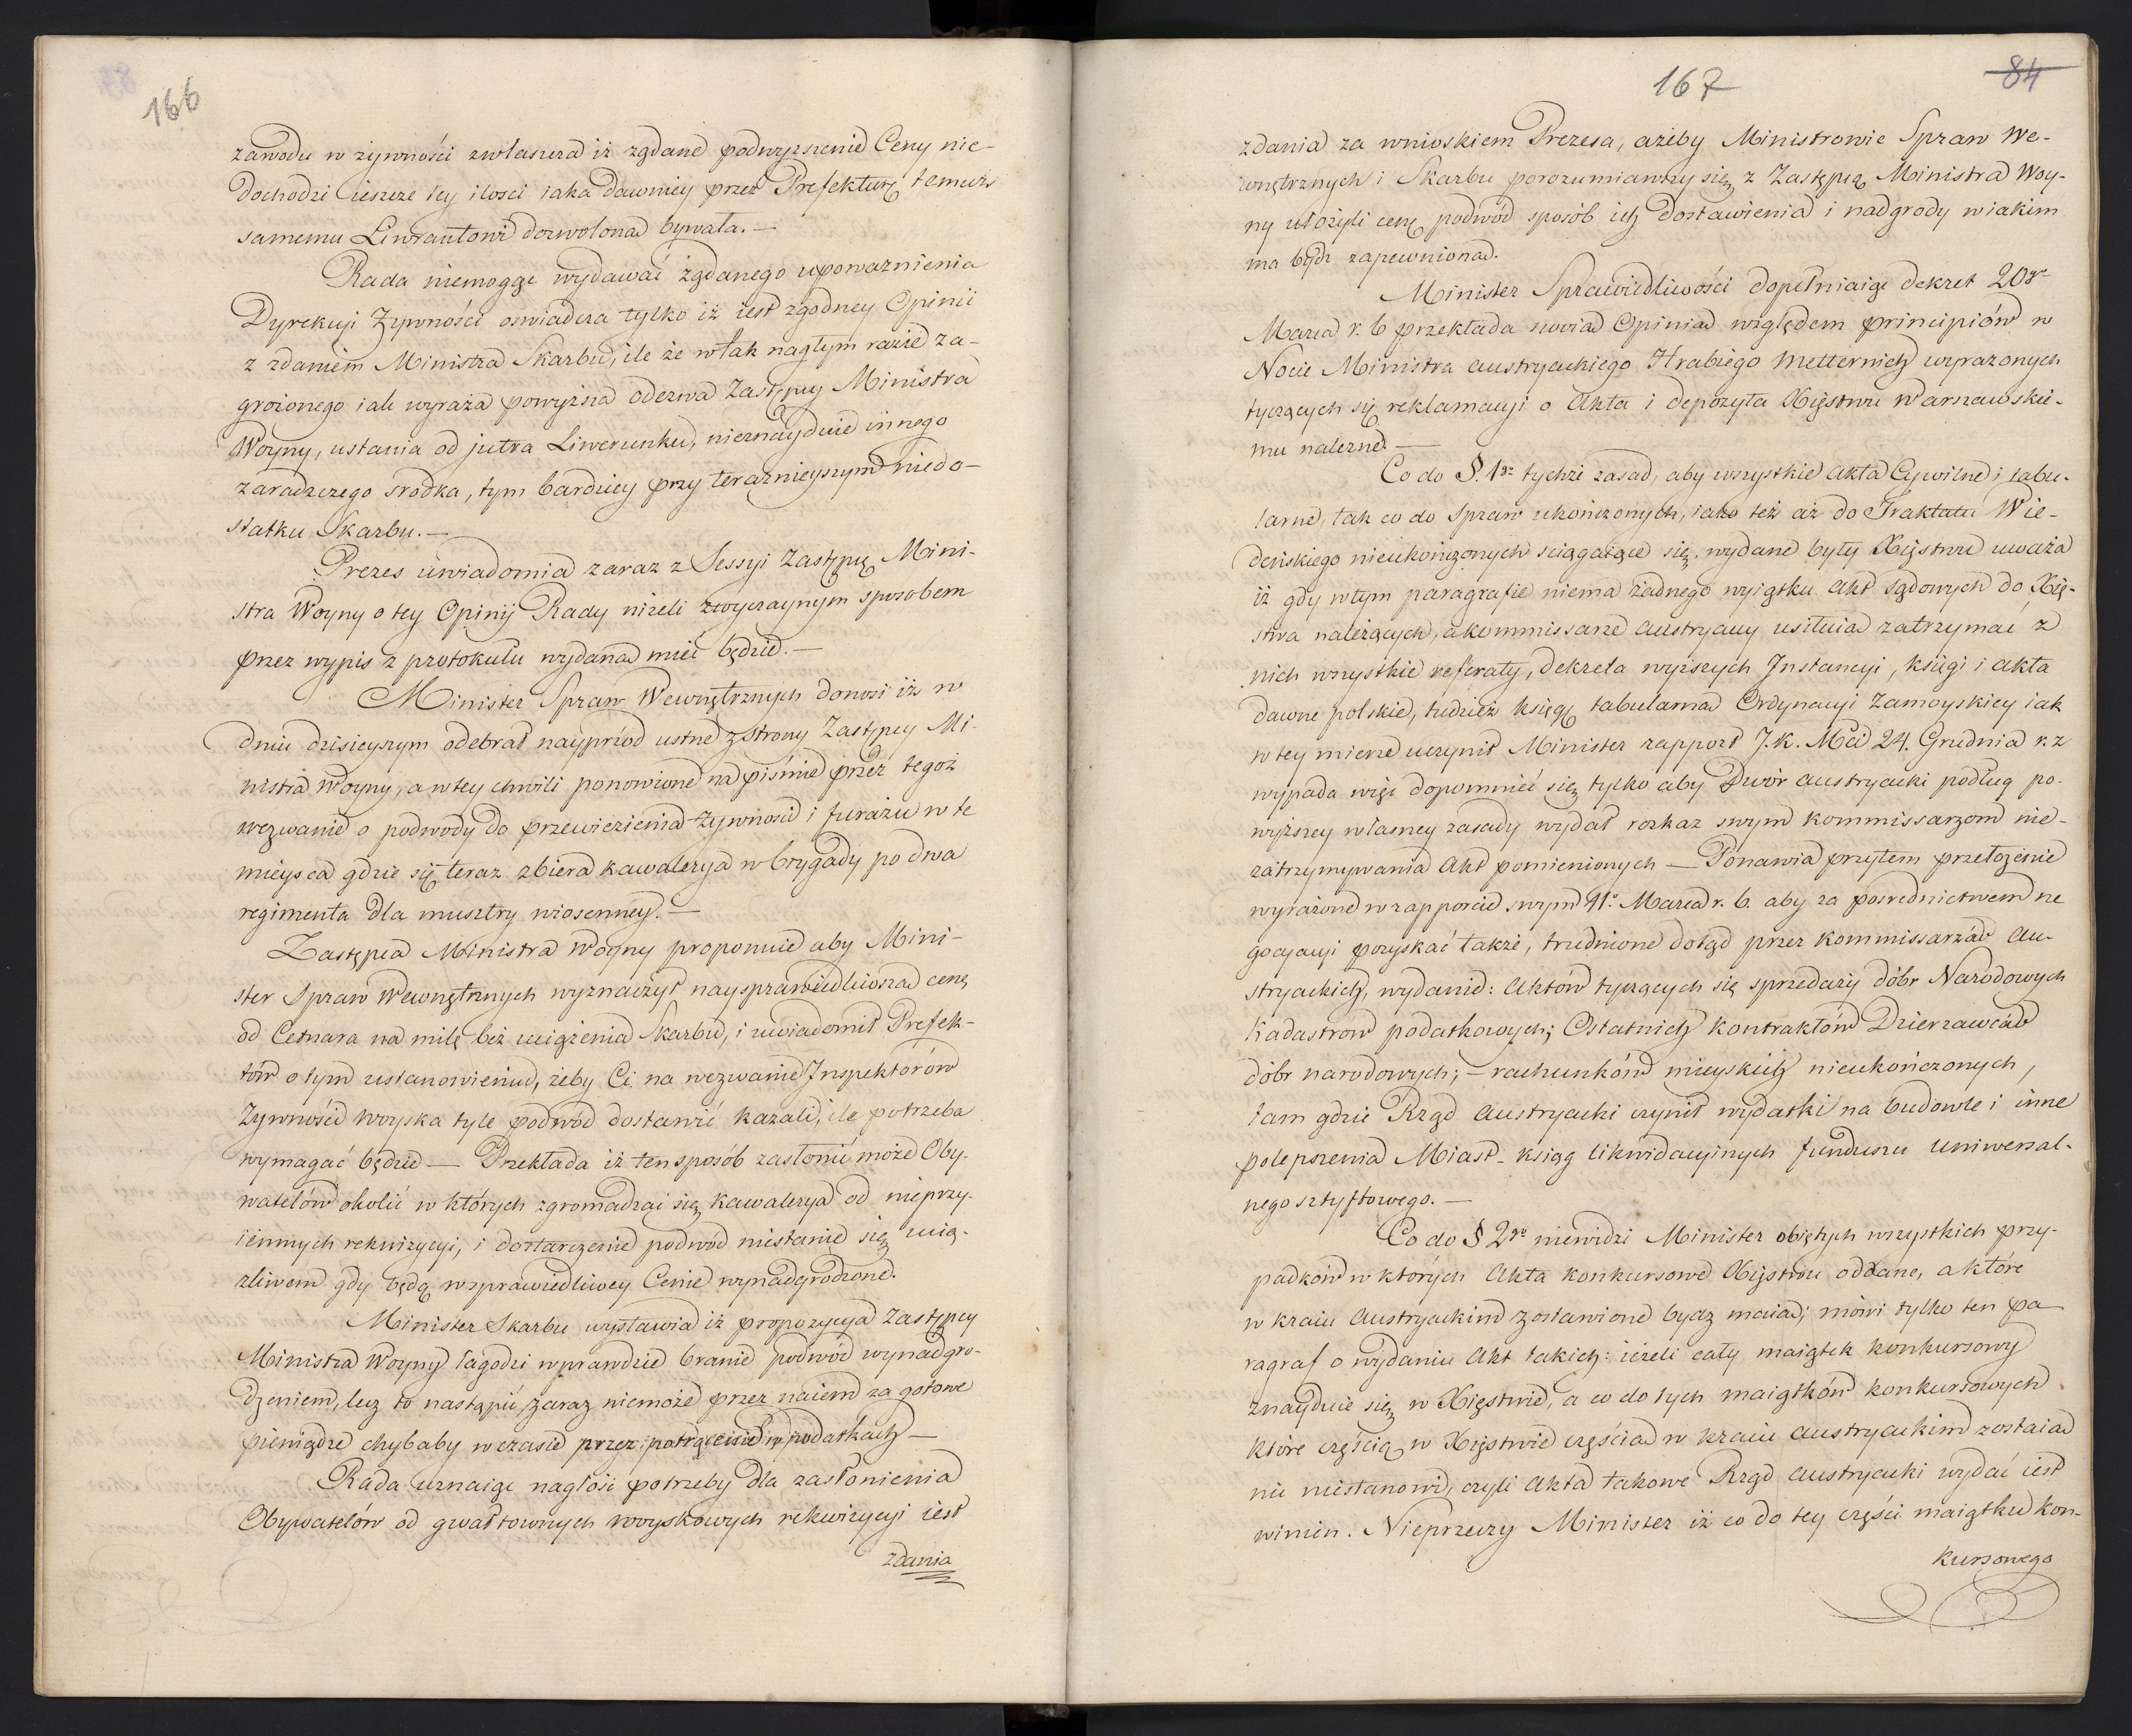 166
zawodu w żywności zwłaszcza iż żądane podwyższenie Ceny nie-
dochodzi ieszcze tey ilosci iaka dawniey przez Prefekturę temuż
samemu Liwrantowi dozwolona bywała. —
Rada niemogąc wydawać żądanego upoważnienia
Dyrekcyi Żywności oswiadcza tylko iż iest zgodney Opinii
z zdaniem Ministra Skarbu, ile że w tak nagłym razie za-
grożonego iak wyraża powyższa odezwa Zastępcy Ministra
Woyny, ustania od jutra Liwerunku, nieznayduie innego
zaradczego srodka, tym bardziey przy teraźnieyszym niedo-
statku Skarbu. —
Prezes uwiadomia zaraz z Sessyi Zastępcę Mini-
stra Woyny o tey Opinij Rady nizeli zwyczaynym sposobem
przez wypis z protokułu wydaną mieć będzie. —
Minister Spraw Wewnętrznych donosi iż w
dniu dzisieyszym odebrał nayprzód ustne z strony Zastępcy Mi-
nistra Woyny, a w tey chwili ponowione na piśmie przez tegoż
wezwanie o podwody do przewiezienia żywności i furażu w te
mieysca gdzie się teraz zbiera kawalerya w brygady po dwa
regimenta dla musztry wiosenney. —
Zastępca Ministra Woyny proponuie aby Mini-
ster Spraw Wewnętrznych wyznaczył naysprawiedliwszą cenę
od Cetnara na milę bez uciążenia Skarbu, i uwiadomił Prefek-
tów o tym ustanowieniu, żeby Ci na wezwanie Inspektorów
Żywności Woyska tyle podwód dostawić kazali, ile potrzeba
wymagać będzie — Przekłada iż ten sposób zasłonić może Oby-
watelów okolic w których zgromadzać się Kawalerya od nieprzy-
iemnych rekwizycyi, i dostarczenie podwód niestanie się ucią-
żliwem gdy będą w sprawiedliwey Cenie wynadgrodzone.
Minister Skarbu wystawia iż propozycya Zastępcy
Ministra Woyny łagodzi wprawdzie branie podwód wynadgro-
dzeniem, lecz to nastąpić zaraz niemoże przez naiem za gotowe
pieniądze chybaby w czasie przez potrącenie w podatkach —
Rada uznaiąc nagłość potrzeby dla zasłonienia
Obywatelów od gwałtownych woyskowych rekwizycyi iest
zdania
167
84
zdania za wnioskiem Prezesa, ażeby Ministrowie Spraw We-
wnętrznych i Skarbu porozumiawszy się z Zastępcą Ministra Woy-
ny ułożyli cenę podwód sposób ich dostawienia i nadgrody w iakim
ma bydź zapewniona.
Minister Sprawiedliwości dopełniaiąc dekret 20go
Marca r. b przekłada swoią Opinią względem principiów w
Nocie Ministra Austryackiego Hrabiego Metternich wyrażonych
tyczących się reklamacyi o Akta i depozyta Xięstwu Warszawskie-
mu należne. —
Co do §. 1go tychże zasad, aby wszystkie Akta Cywilne i tabu-
larne, tak co do Spraw ukończonych, iako też aż do Traktatu Wie-
deńskiego nieukończonych sciągaiące się, wydane były Xięstwu uważa
iż gdy w tym paragrafie niema żadnego wyiątku Akt sądowych do Xię-
stwa należących, a kommissarze Austryaccy usiłuią zatrzymać z
nich wszystkie referaty, dekreta wyższych Instancyi, księgi i akta
dawne polskie, tudzież księgę tabularną Ordynacyi Zamoyskiey iak
w tey mierze uczynił Minister rapport J. K. Mci 24. Grudnia r. z
wypada więc dopomnieć się tylko aby Dwór Austryacki podług po-
wyższey własney zasady wydał rozkaz swym kommissarzom nie-
zatrzymywania Akt pomienionych — Ponawia przytem przełożenie
wyrażone w rapporcie swym 11o Marca r. b. aby za posrednictwem ne
gocyacyi pozyskać także, trudnione dotąd przez kommissarzów Au-
stryackich, wydanie: Aktów tyczących się sprzedaży dóbr Narodowych
Kadastrow podatkowych; Ostatnich kontraktów Dzierzawców
dóbr narodowych; — rachunków mieyskich nieukończonych,
tam gdzie Rząd Austryacki czynił wydatki na budowle i inne
polepszenia Miast - ksiąg likwidacyinych funduszu Uniwersal-
nego sztyftowego. —
Co do § 2go niewidzi Minister obiętych wszystkich przy-
padków w których Akta konkursowe Xięstwu oddane, a które
w kraiu Austryackim zostawione bydz maią; mówi tylko ten pa
ragraf o wydaniu Akt takich: ieżeli cały maiątek konkursowy
znayduie się w Xięstwie, a co do tych maiątków konkursowych
które częścią w Xięstwie częścią w kraiu Austryackim zostaią
nic niestanowi, czyli Akta takowe Rząd Austryacki wydać iest
winien. Nieprzeczy Minister iż co do tey części maiątku kon-
kursowego